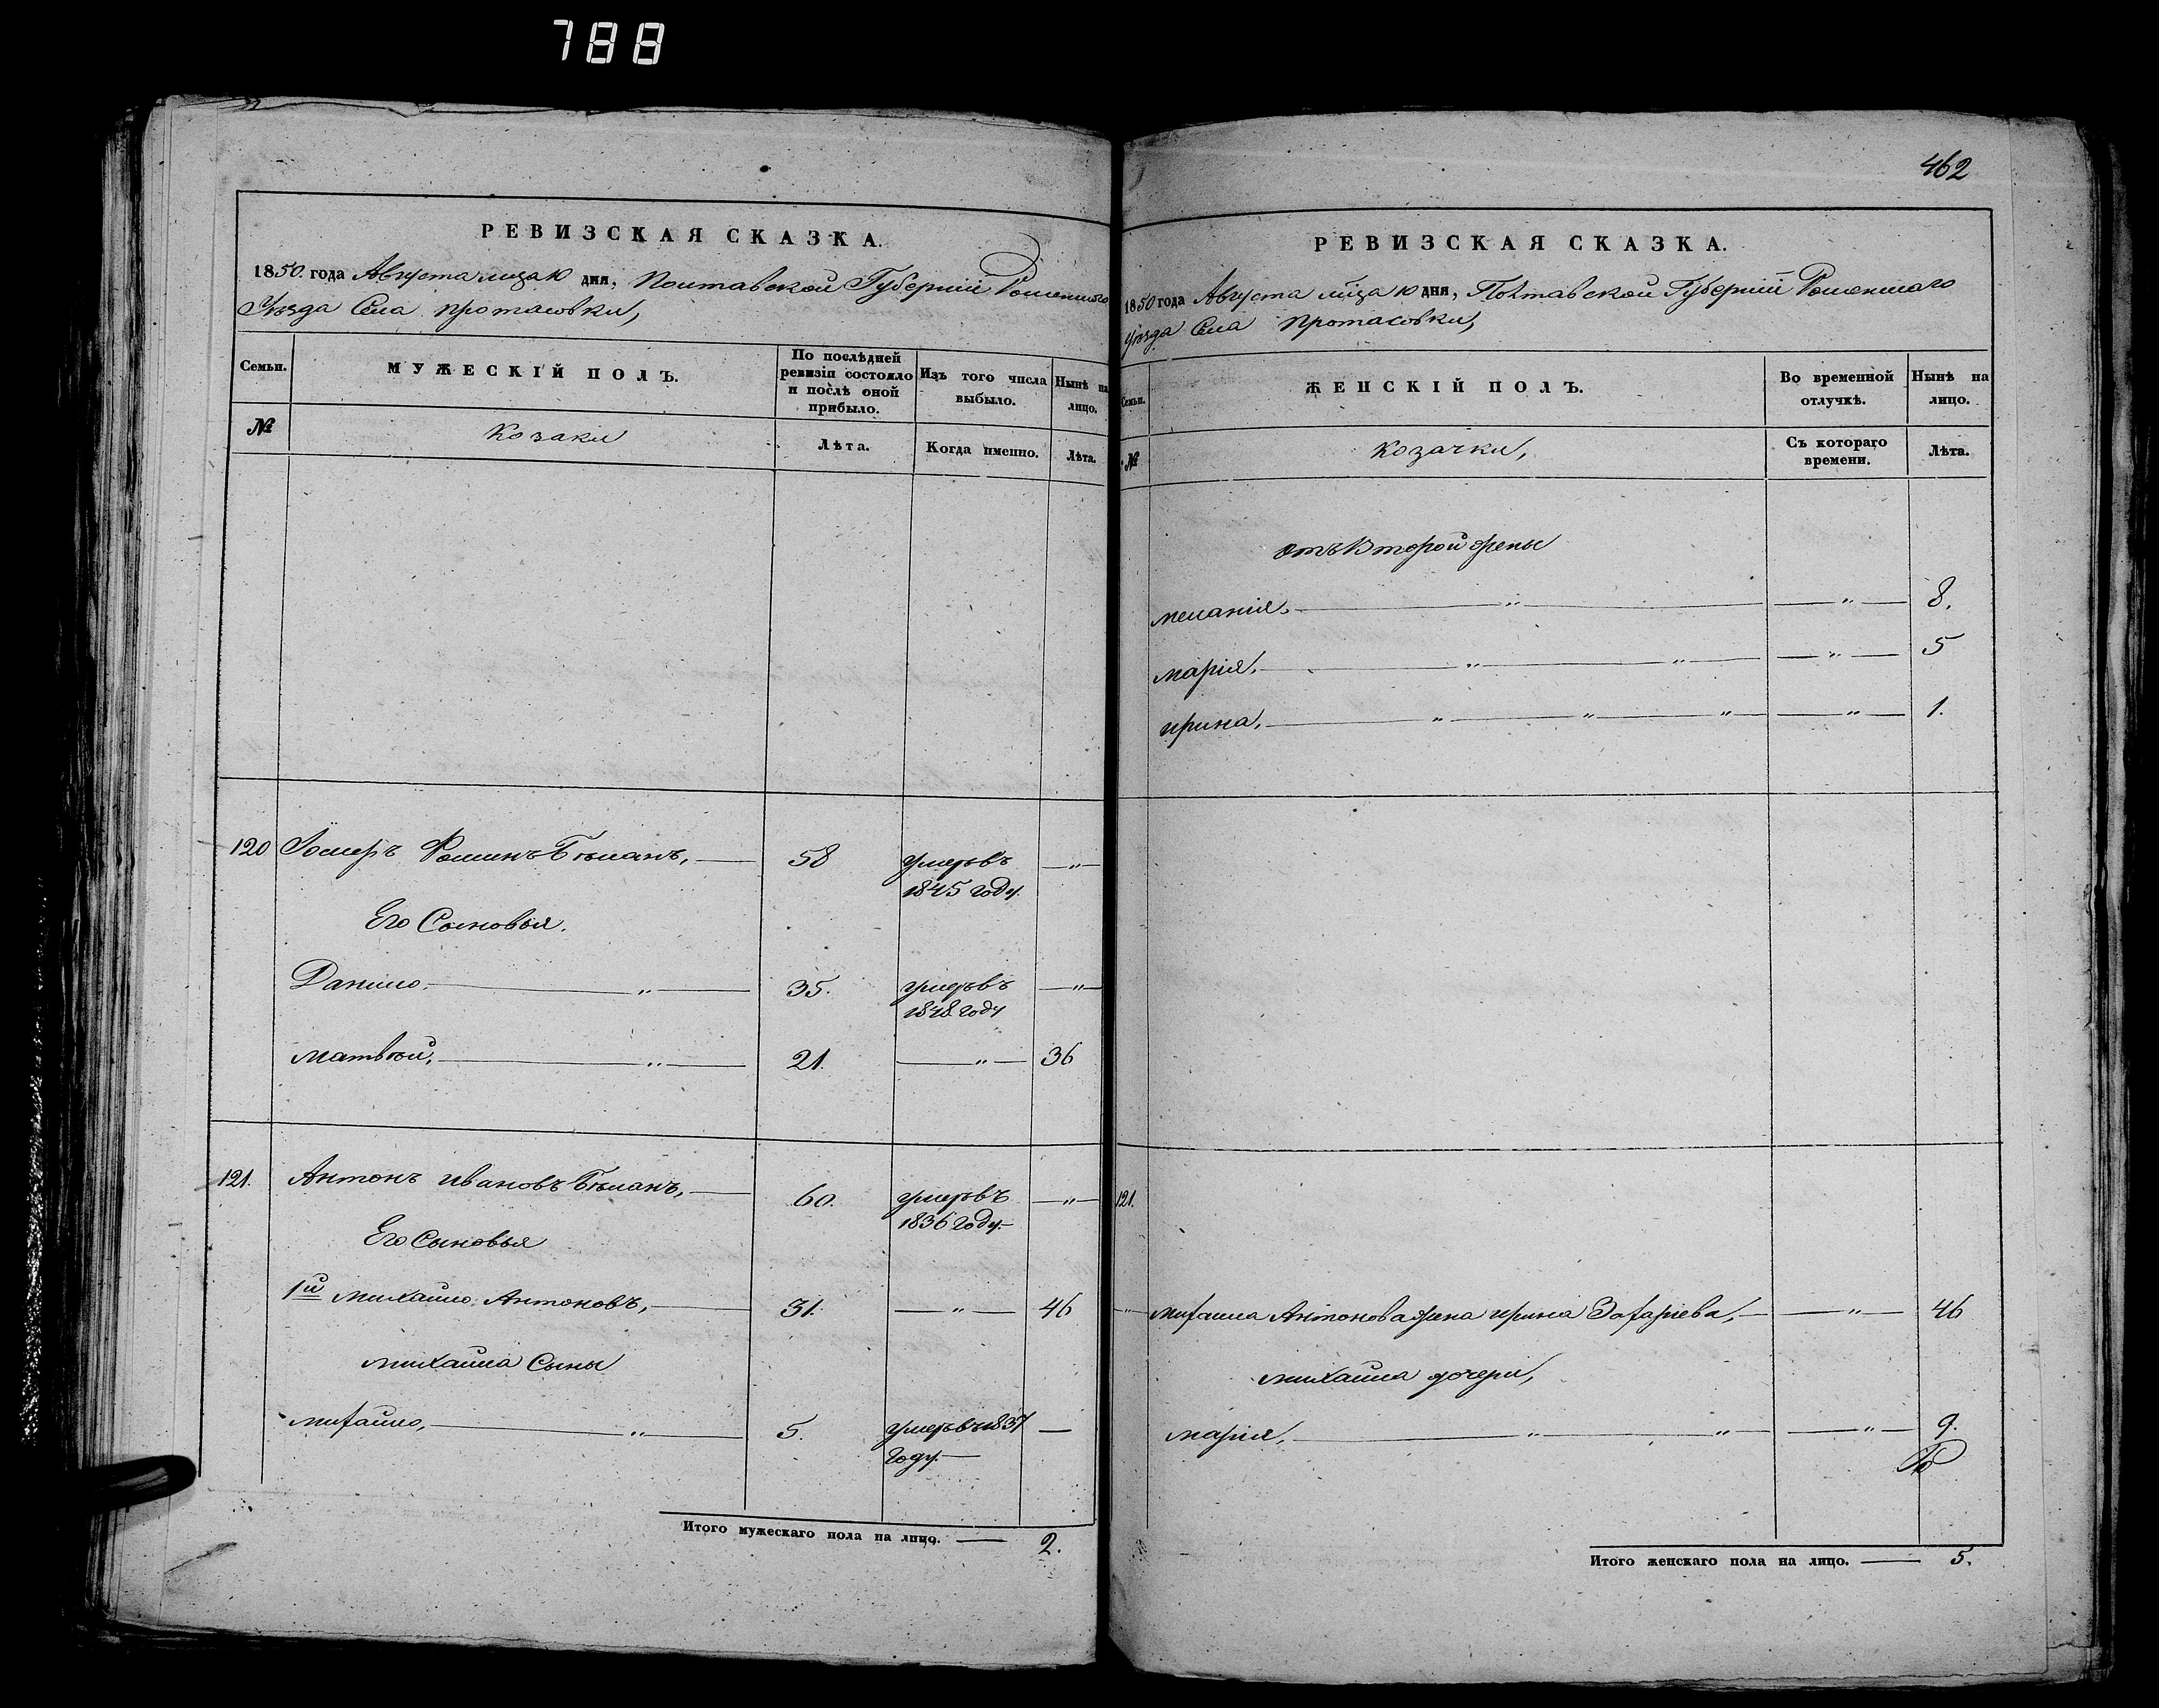 788
РЕВИЗСКАЯ СКАЗКА.
1850. года Августа мца 10 дня, Полтавской Губерніи Роменского
Уѣзда Села протасовки,
Семьи.
МУЖЕСКІЙ ПОЛЪ.
По послѣдней ревизіи состояло и послѣ оной прибыло.
Изъ того числа выбыло.
Нынѣ на лицо.
№
Козаки
Лѣта.
Когда именно.
Лѣта.
120 Фоминъ Бѣланъ, 58 умеръ въ
1845 году.
Его Сыновья.
Данило. " 35. умеръ въ "
1848 году
матвѣй, " 21. " 36
121. Антонъ ивановъ Бѣланъ, 60. умеръ въ "
1836 году.
Его Сыновья
1й михайло Антоновъ, 31. " 46
михайла Сыны
михайло, " 5. умеръ въ 1837
году.
Итого мужескаго пола на лицо. 2.
462
РЕВИЗСКАЯ СКАЗКА.
1850 года Августа мѣца 10 дня, Полтавской Губерніи Роменского
уѣзда Села протасовки,
Семьи.
ЖЕНСКІЙ ПОЛЪ.
Во временной отлучкѣ.
Нынѣ на лицо.
№
Козачки,
Съ котораго времени.
Лѣта.
отъ Второй жены
меланія. " " 8.
марія. " " " 5
ирина, " " " " 1.
121.
" михайла Антонова жена ирина Захаріева, " 46
михайла дочери,
марія, " " " 9.
Итого женскаго пола на лицо. 5.